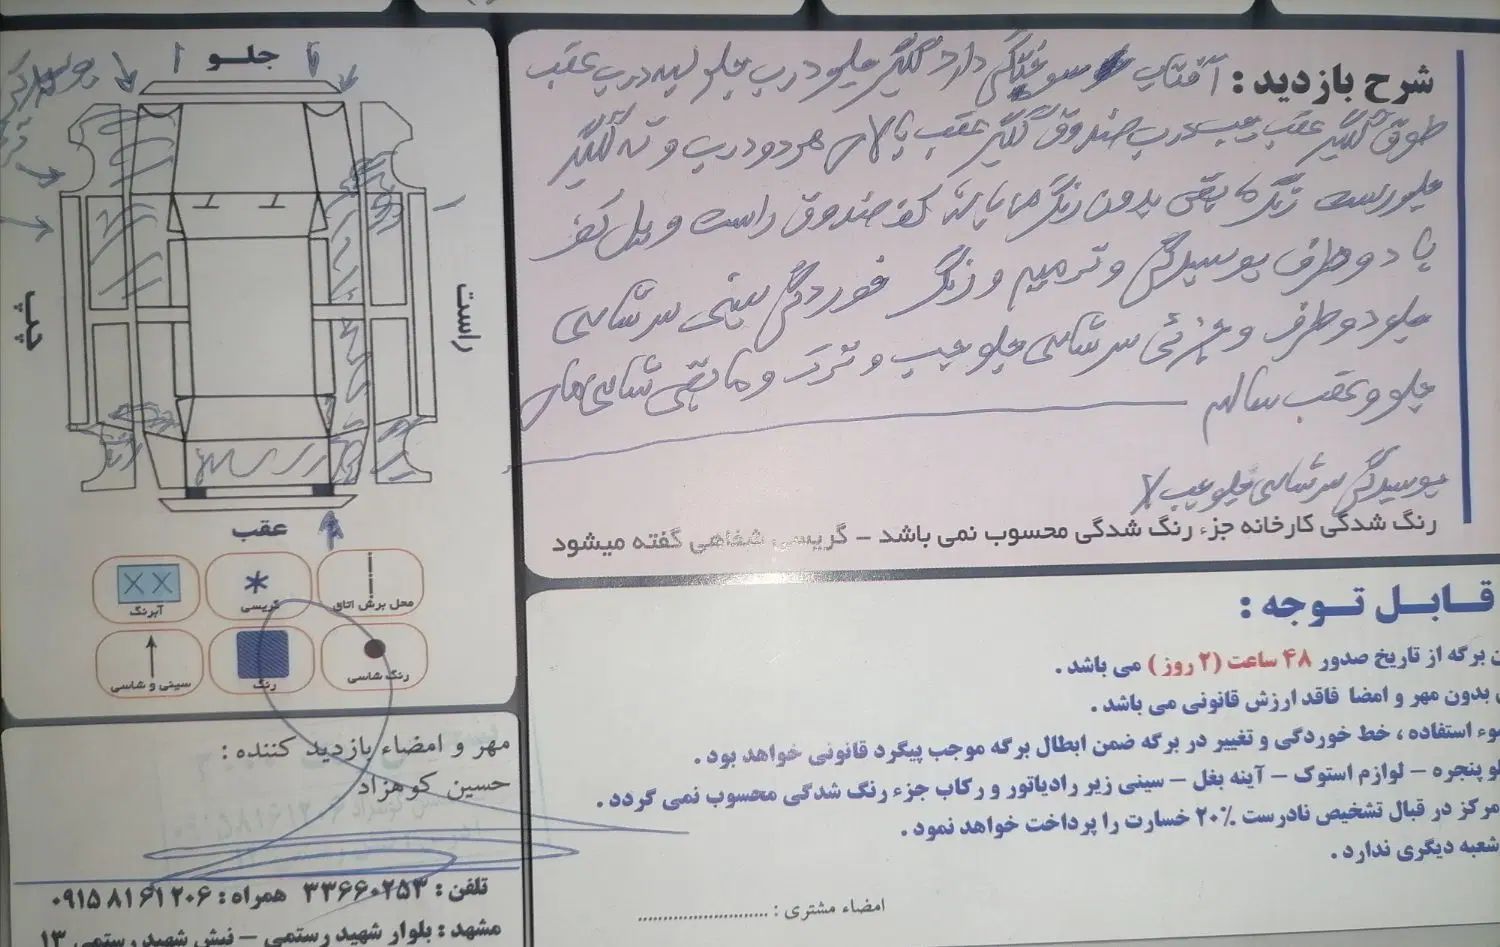 شرح بازدید : آفتاب سوختگی دارد گلگیر جلو درب جلو لبه درب عقب
طوق گلگیر عقب چپ درب صندوق گلگیر عقب پالان هر دو درب و ته گلگیر
جلو راست رنگ مابقی بدون رنگ ما پایه کف صندوق راست و پل کف
پا دو طرف پوسیدگی و ترمیم و زنگ خوردگی سینی سر شاسی
جلو دو طرف و جزئی سر شاسی جلو چپ و ترک و مابقی شاسی های
جلو و عقب سالم
پوسیدگی سر شاسی جلو چپ
رنگ شدگی کارخانه جزء رنگ شدگی محسوب نمی باشد - گریسی شفاهی گفته میشود
جلــو
پوسیدگی
راست
چپ
عقب
محل برش اتاق
گریسی
آبرنگ
رنگ شاسی
رنگ
سینی و شاسی
مهر و امضاء بازدید کننده :
حسین کوهزاد
تلفن : ۳۳۶۶۰۲۵۳ همراه : ۰۹۱۵۸۱۶۱۲۰۶
مشهد : بلوار شهید رستمی – نبش شهید رستمی ۱۳
قـابــل تــوجه :
برگه از تاریخ صدور ۴۸ ساعت (۲ روز) می باشد .
بدون مهر و امضا فاقد ارزش قانونی می باشد .
وء استفاده ، خط خوردگی و تغییر در برگه ضمن ابطال برگه موجب پیگرد قانونی خواهد بود .
لو پنجره – لوازم استوک – آینه بغل – سینی زیر رادیاتور و رکاب جزء رنگ شدگی محسوب نمی گردد .
مرکز در قبال تشخیص نادرست ۲۰٪ خسارت را پرداخت خواهد نمود .
شعبه دیگری ندارد .
امضاء مشتری : ..........................